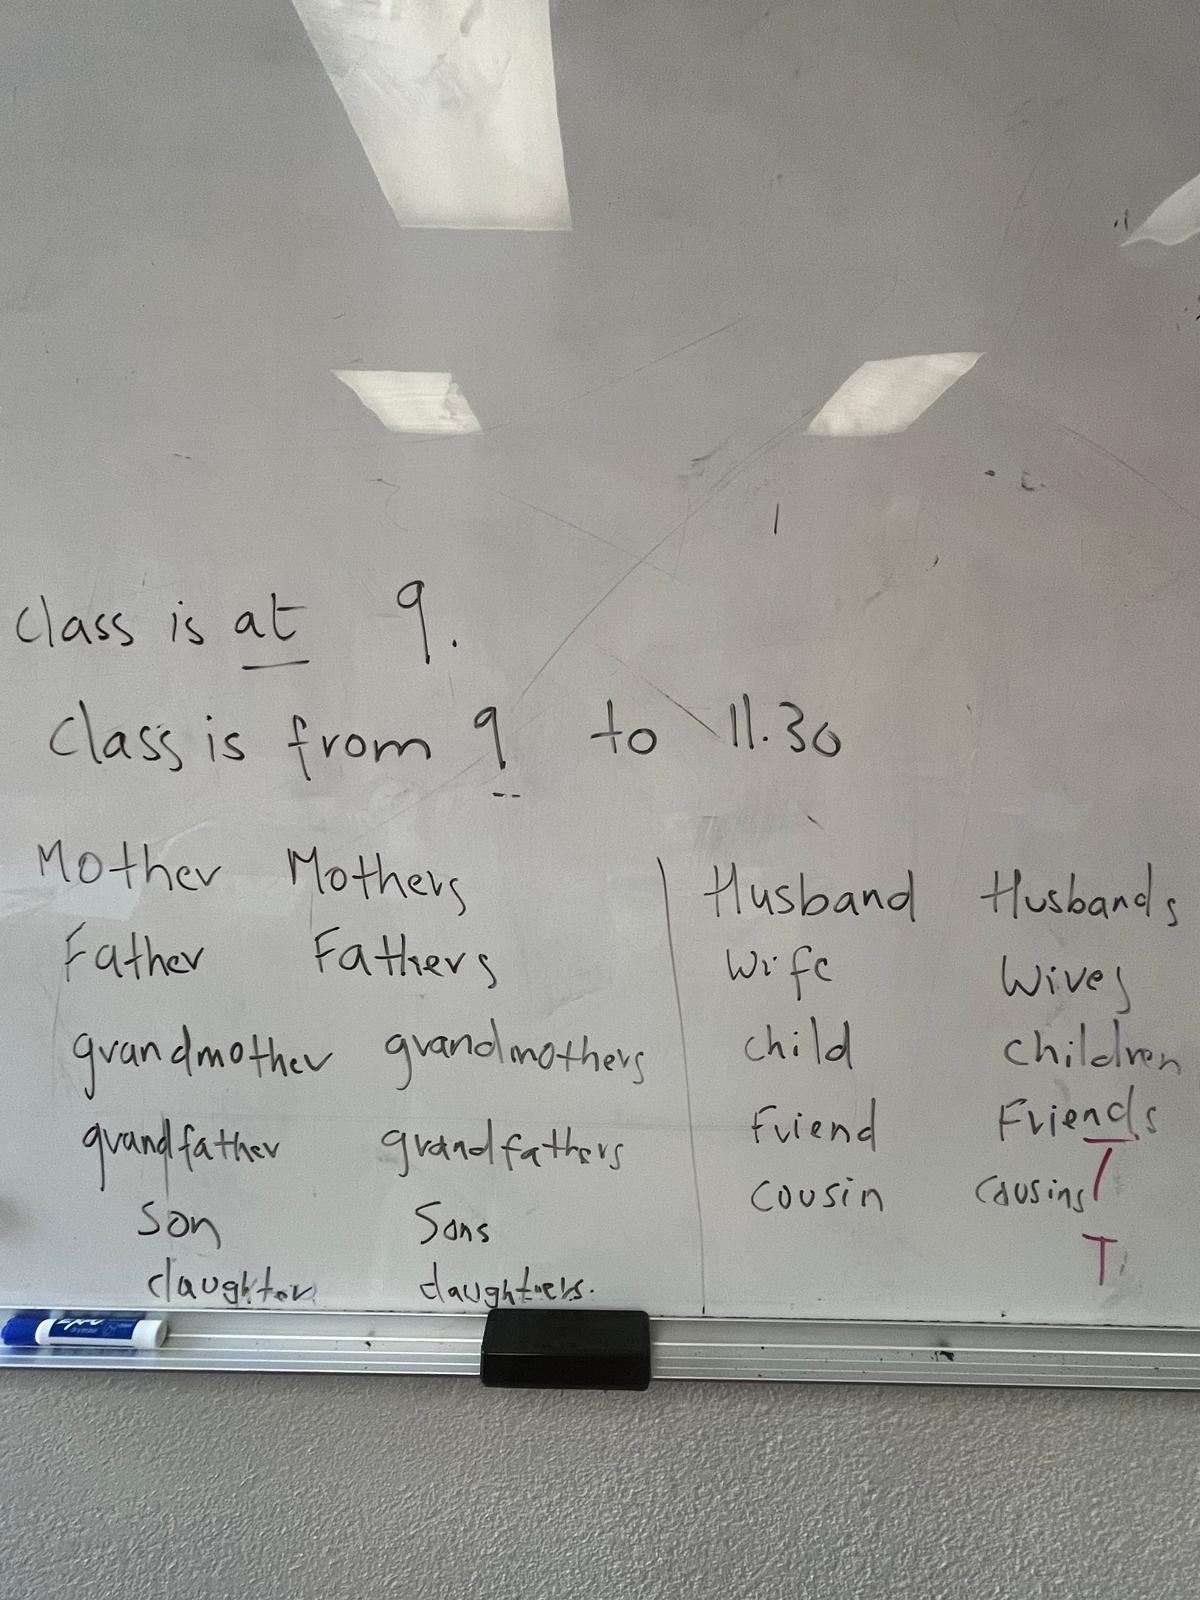 Class is at 9.
Class is from 9 to 11.30
Mother Mothers
Father Fathers
grandmother grandmothers
grandfather grandfathers
Son Sons
daughter daughters.
Husband Husbands
Wife Wives
child children
Friend Friends
cousin cousins
T
EXPO